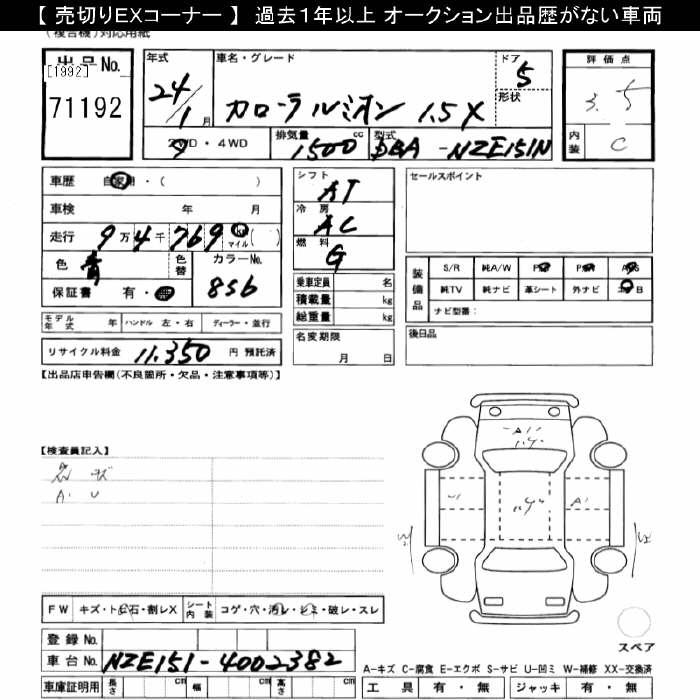 【 売切りEXコーナー 】 過去１年以上 オークション出品歴がない車両
(複合機)対応用紙
出品No.
[1992]
71192
年式
24/1月
車名・グレード
カローラルミオン 1.5X
ドア 5
形状
評価点
3.5
内装 C
2WD・4WD
排気量 1500 cc
型式 DBA-NZE151N
車歴 自家用・( )
車検 年 月
走行 9万4千769 km マイル ( )
色 青
色替
カラーNo. 8S6
保証書 有・無
シフト AT
冷房 AC
燃料 G
乗車定員 名
積載量 kg
総重量 kg
名変期限
月 日
セールスポイント
装備品
S/R 純A/W P/S P/W A/S
純TV 純ナビ 革シート 外ナビ B
ナビ型番:
後日品
モデル年式 年 ハンドル 左・右 ディーラー・並行
リサイクル料金 11,350 円 預託済
【出品店申告欄(不良箇所・欠品・注意事項等)】
【検査員記入】
A. U
A1
U
A1
FW キズ・トビ石・割レX シート内装 コゲ・穴・汚レ・シミ・破レ・スレ
登録No.
車台No. NZE151-4002382
車庫証明用 長さ cm 幅 cm 高さ cm
スペア
A-キズ C-腐食 E-エクボ S-サビ U-凹ミ W-補修 XX-交換済
工具 有・無 ジャッキ 有・無